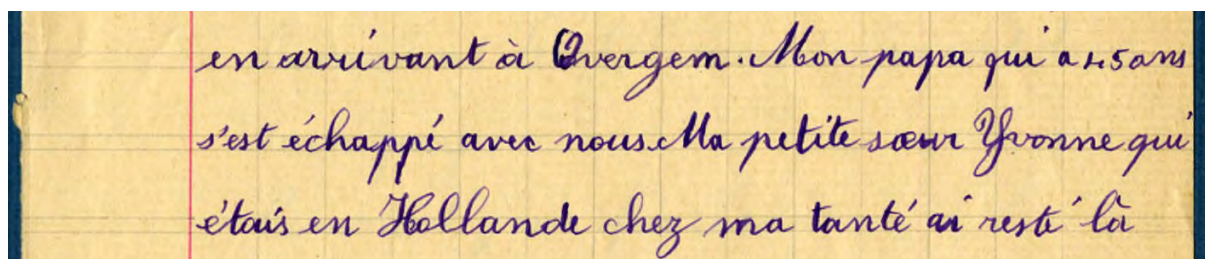 en arrivant à Overgem. Mon papa qui a 45 ans
s'est échappé avec nous. Ma petite sœur Yvonne qui
étais en Hollande chez ma tanté ai resté là